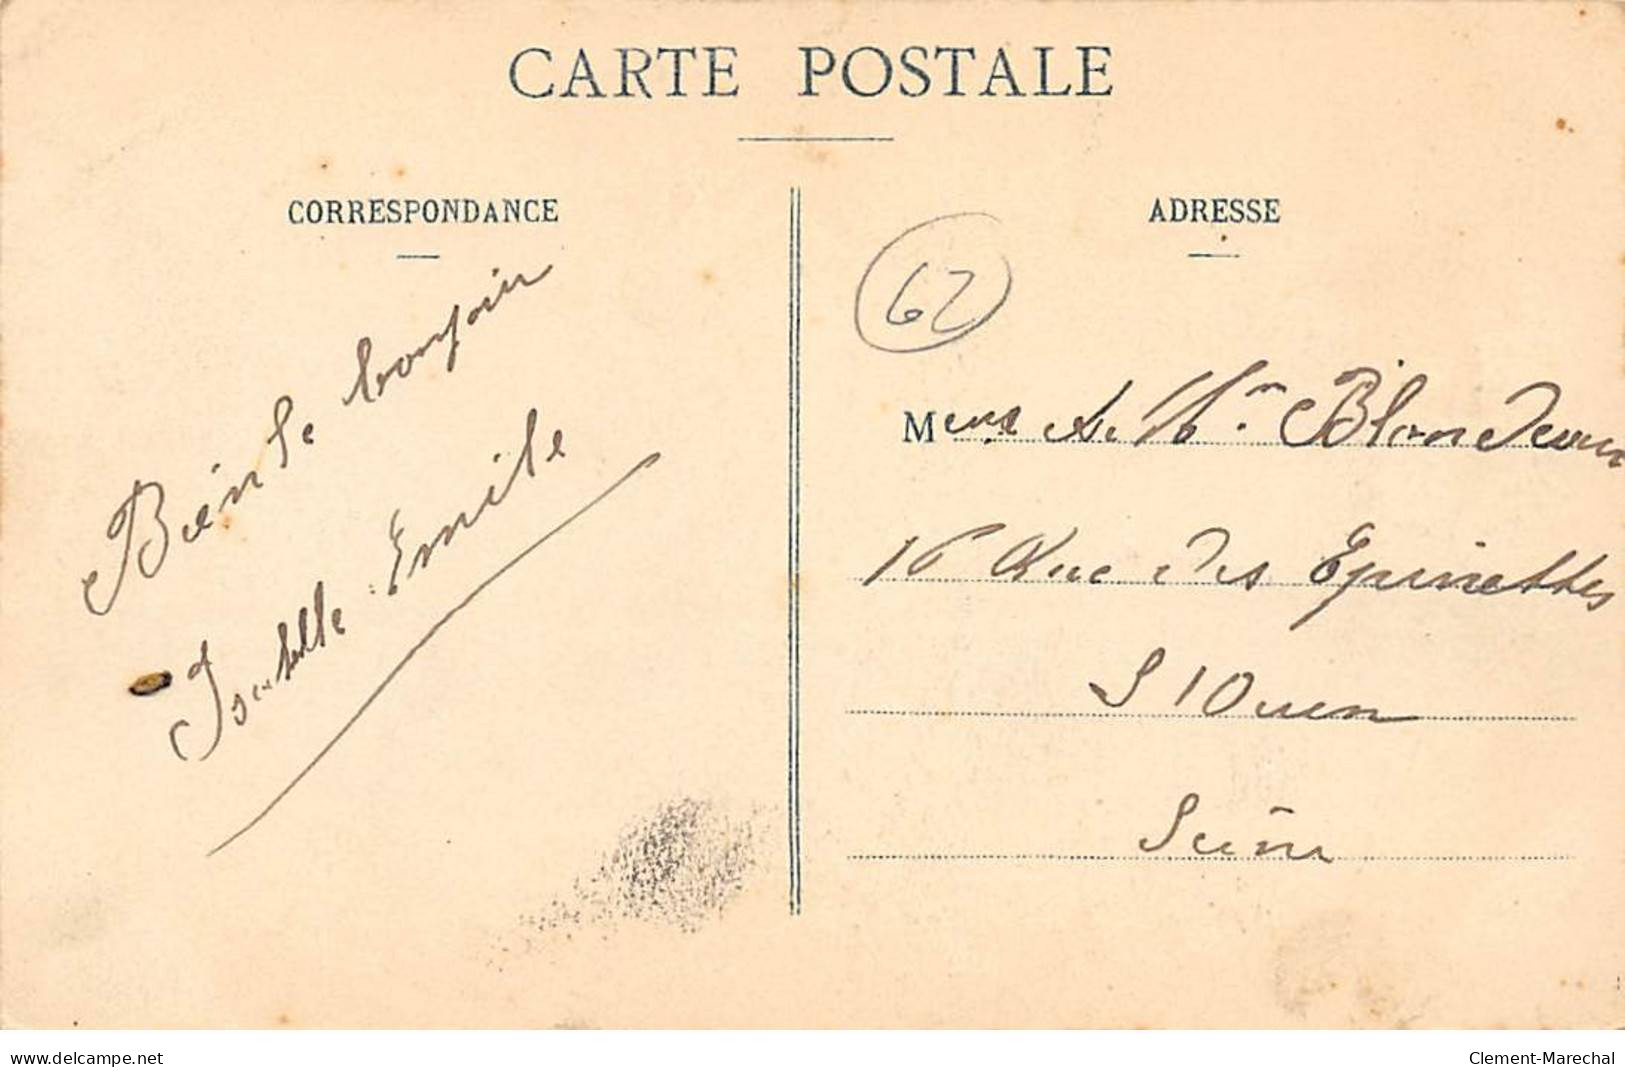 CARTE POSTALE
CORRESPONDANCE
Bien le bonjour
Isabelle Emile
ADRESSE
62
M
Blondeau
16 Rue des Epinettes
St Ouen
Seine
www.delcampe.net
Clement-Marechal